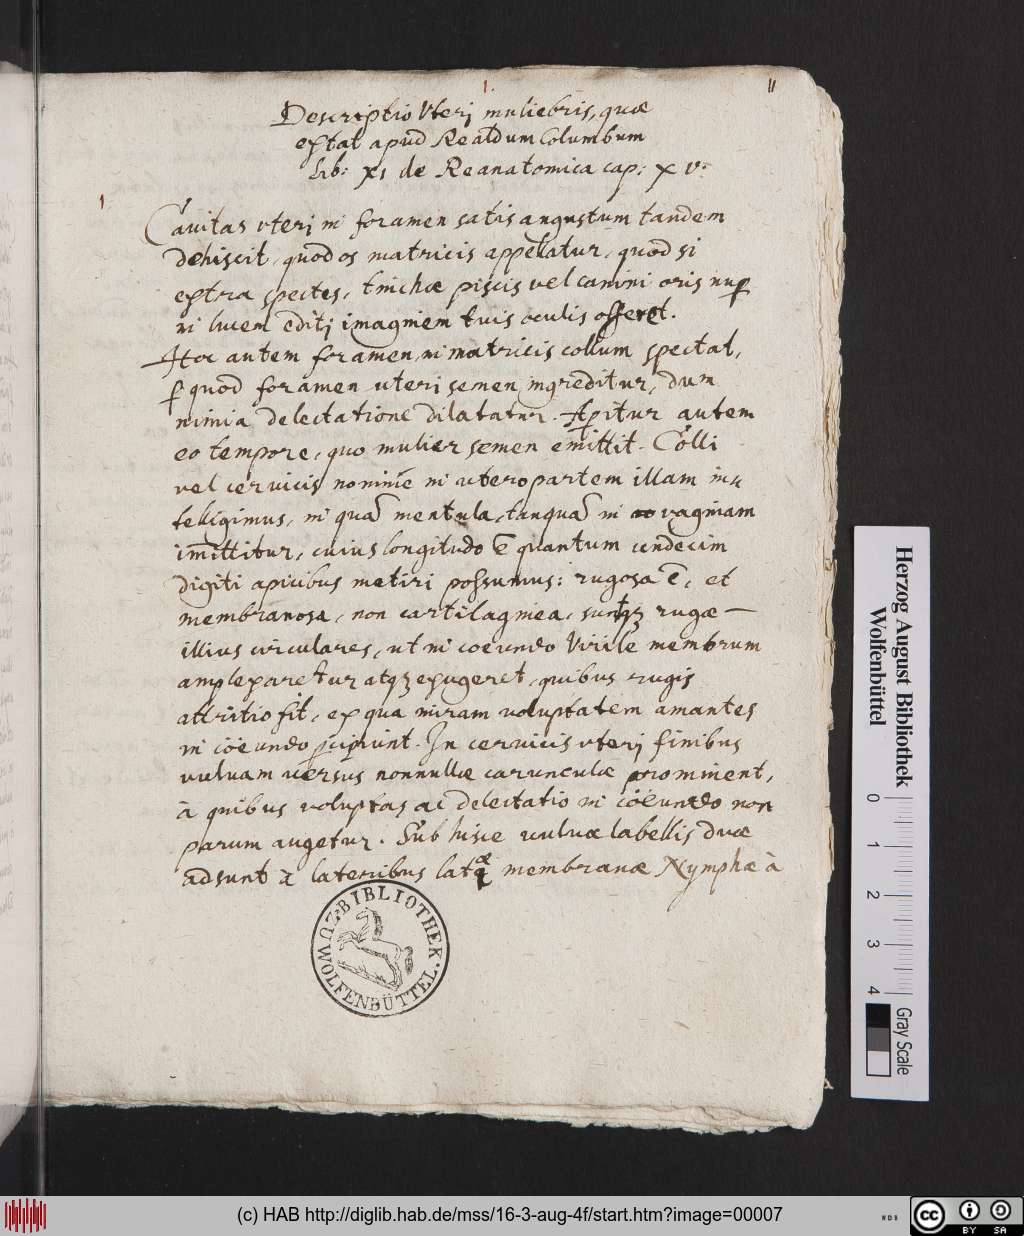 1.
11
Descriptio Uterj muliebris, quæ
extat apud Realdum Columbum
lib: XI de Re anatomica cap: XV.
1.
Cavitas uterj in foramen satis angustum tandem
dehiscit, quod os matricis appellatur, quod si
extra spectes, tinchæ piscis vel canini oris nup
in lucem editj imaginem tuis oculis offeret.
Hoc autem foramen in matricis collum spectat,
p quod foramen uteri semen ingreditur, dum
nimia delectatione dilatatur. Apitur autem
eo tempore, quo mulier semen emittit. Colli
vel cervicis nomine in utero partem illam in-
telligimus, in quã mentula, tanquã in vaginam
imittitur, cuius longitudo ẽ quantum undecim
digiti apicibus metiri possumus: rugosa ẽ, et
membranosa, non cartilaginea, suntqz rugæ —
illius circulares, ut in coeundo virile membrum
amplexaretur atqz exugeret, quibus rugis
attritio fit, ex qua miram voluptatem amantes
in coeundo pcipiunt. In cervicis uterj finibus
vulvam versus nonnullæ carunculæ prominent,
à quibus voluptas ac delectatio in coëundo non
parum augetur. Sub hisce vulvæ labellis duæ
adsunt a lateribus latæ membranæ Nymphæ à
BIBLIOTHEK ZU WOLFENBÜTTEL
Herzog August Bibliothek
Wolfenbüttel
0 1 2 3 4
Gray Scale
(c) HAB http://diglib.hab.de/mss/16-3-aug-4f/start.htm?image=00007
cc BY SA